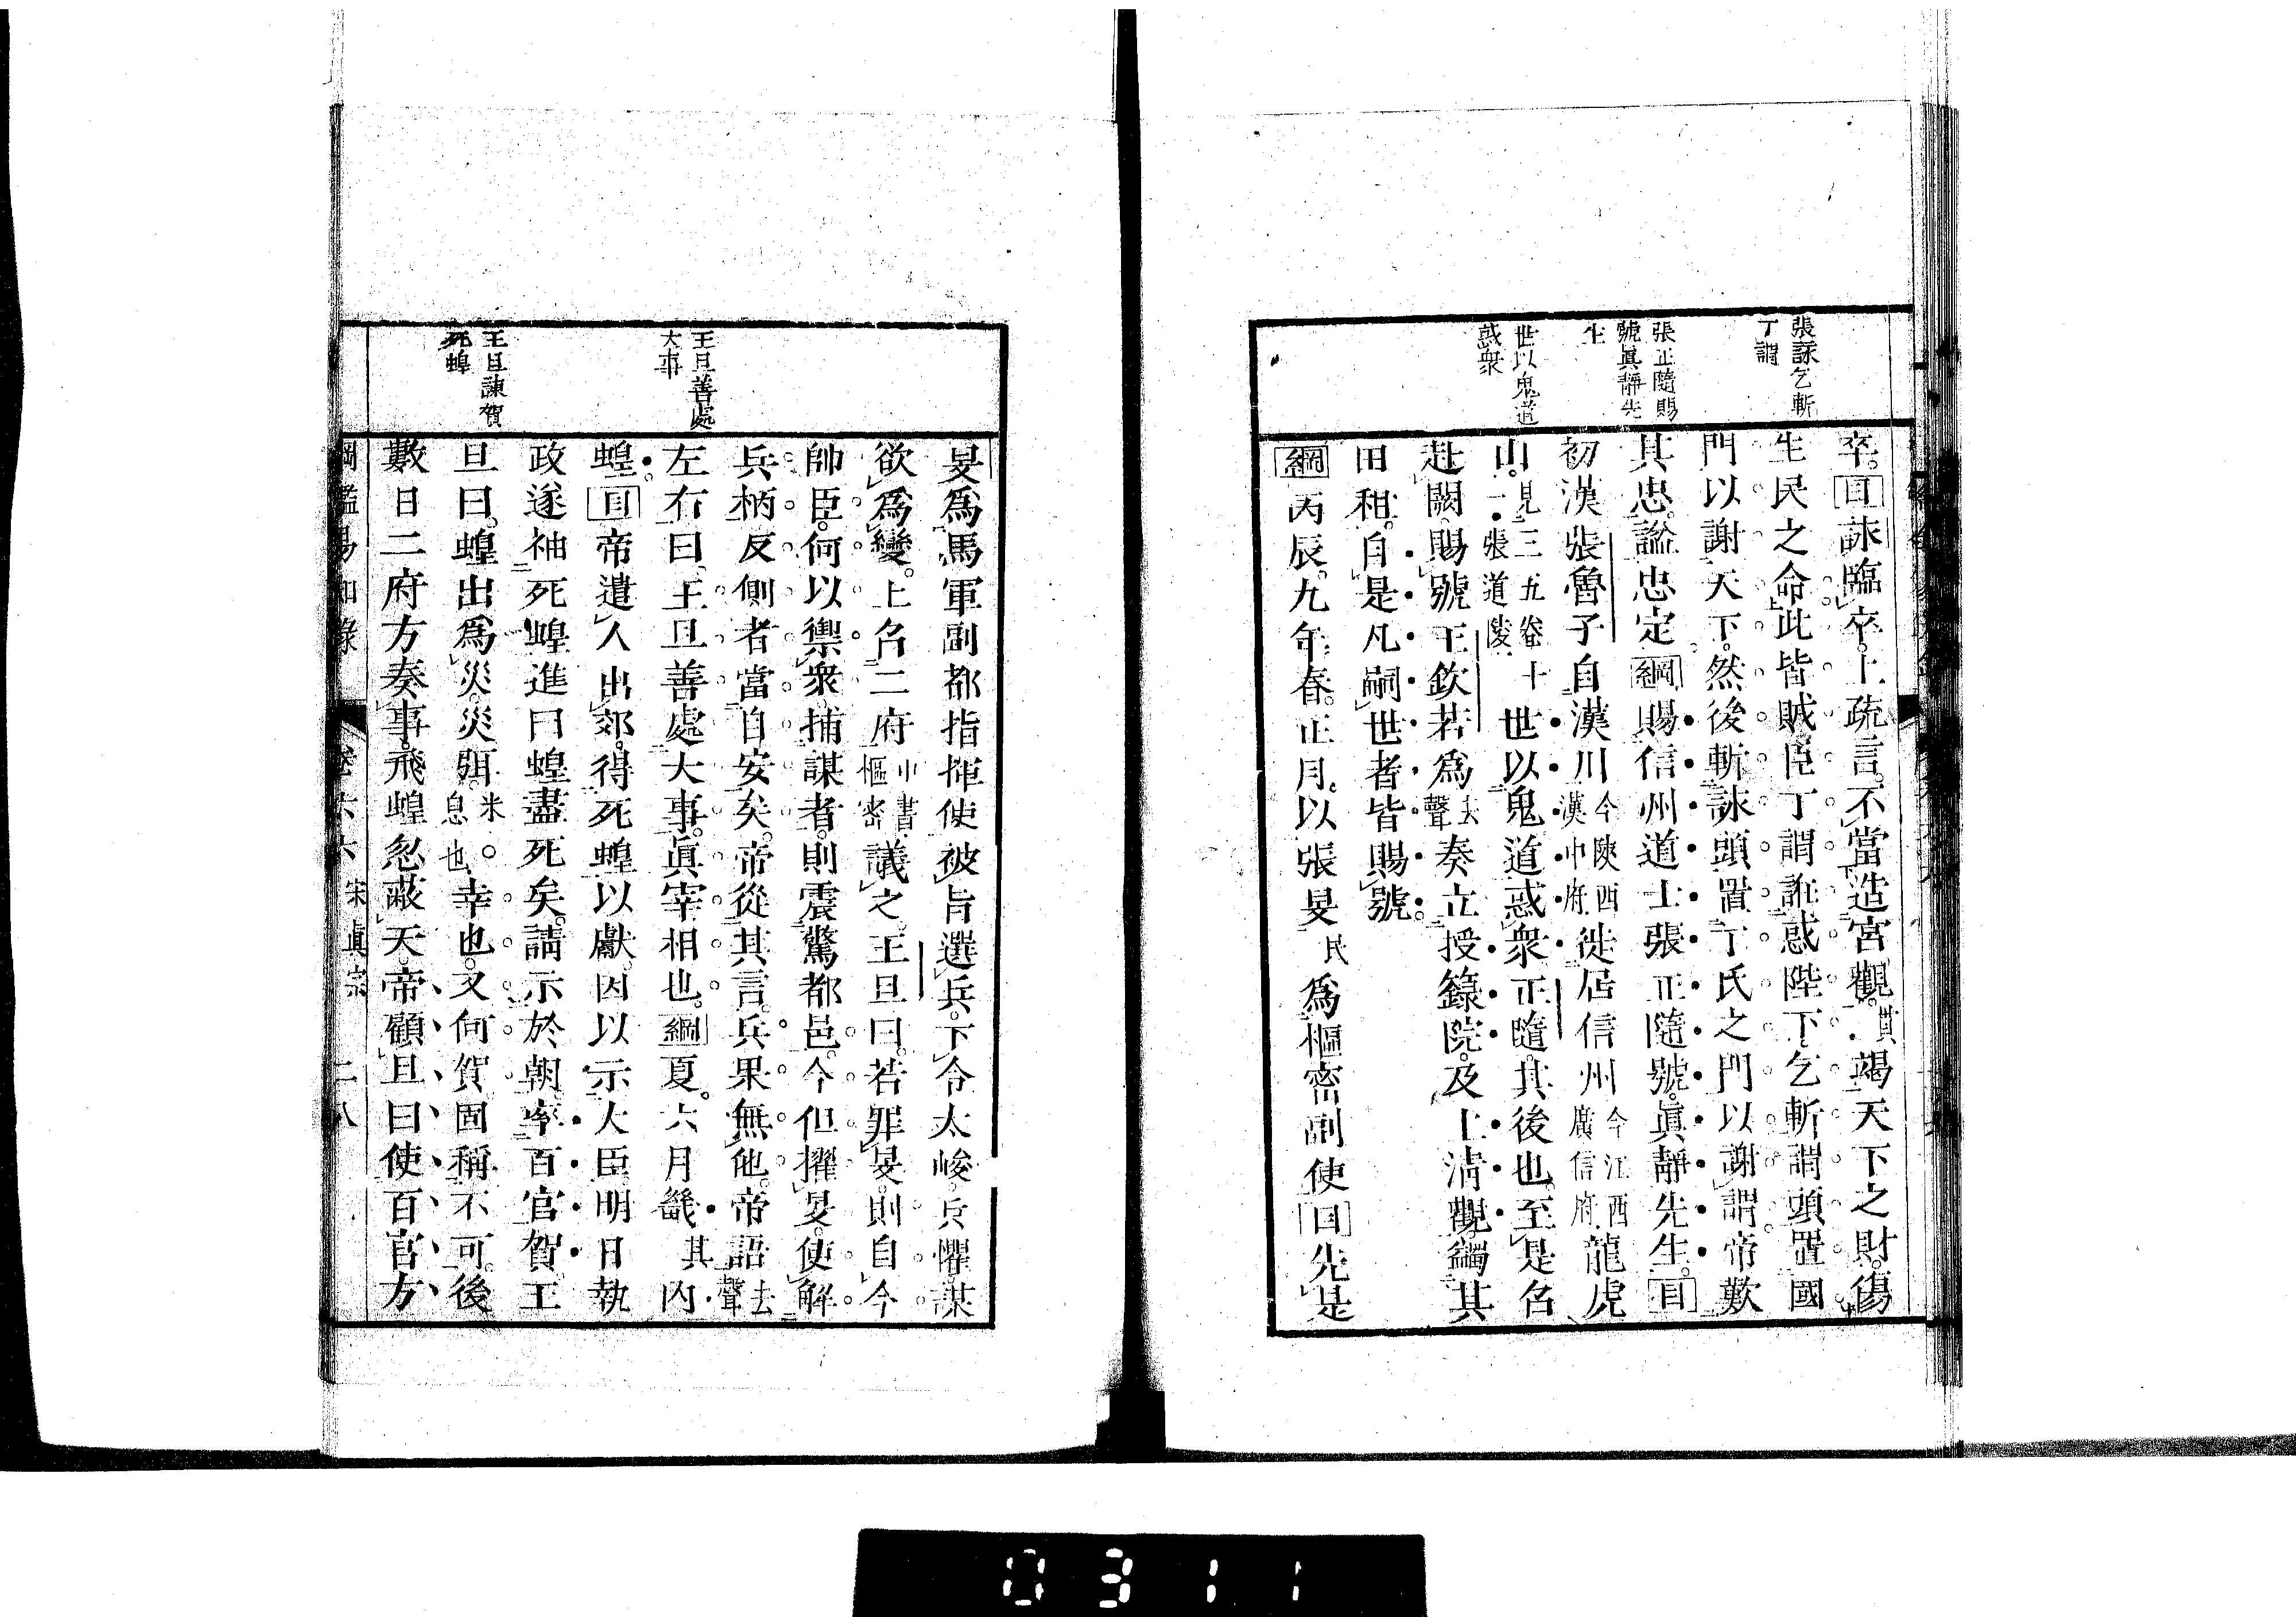 張詠乞斬
丁謂
張正隨賜
號眞靜先
生
世以鬼道
惑衆
卒。目詠臨卒。上疏言。不當造宮觀。貫竭天下之財。傷
生民之命。此皆賊臣丁謂誑惑陛下。乞斬謂頭置國
門以謝天下。然後斬詠頭置丁氏之門以謝謂。帝歎
其忠。謚忠定。綱賜信州道士張正隨號。眞靜先生。目
初漢張魯子自漢川今陝西漢中府徙居信州今江西廣信府龍虎
山。見三五卷十一張道陵世以鬼道惑衆。正隨。其後也。至是召
赴闕。賜號。王欽若爲去聲奏立授籙院。及上清觀。蠲其
田租。自是凡嗣世者皆賜號。
綱丙辰。九年。春。正月。以張旻民爲樞密副使目先是
王旦善處
大事
王旦諫賀
死蝗
旻爲馬軍副都指揮使被旨選兵。下令太峻。兵懼。謀
欲爲變。上召二府中書樞密議之。王旦曰。若罪旻。則自今
帥臣。何以禦衆。捕謀者。則震驚都邑。今但擢旻。使解
兵柄。反側者當自安矣。帝從其言。兵果無他。帝語去聲
左右曰。王旦善處大事。眞宰相也。綱夏。六月。畿其內
蝗。目帝遣人出郊。得死蝗以獻。因以示大臣。明日執
政遂袖死蝗進曰。蝗盡死矣。請示於朝。率百官賀。王
旦曰。蝗出爲災。災弭。米息也。幸也。又何賀。固稱不可。後
數日二府方奏事。飛蝗忽蔽天。帝顧旦曰。使百官方
綱鑑易知錄 卷六六 宋眞宗 二八
0311